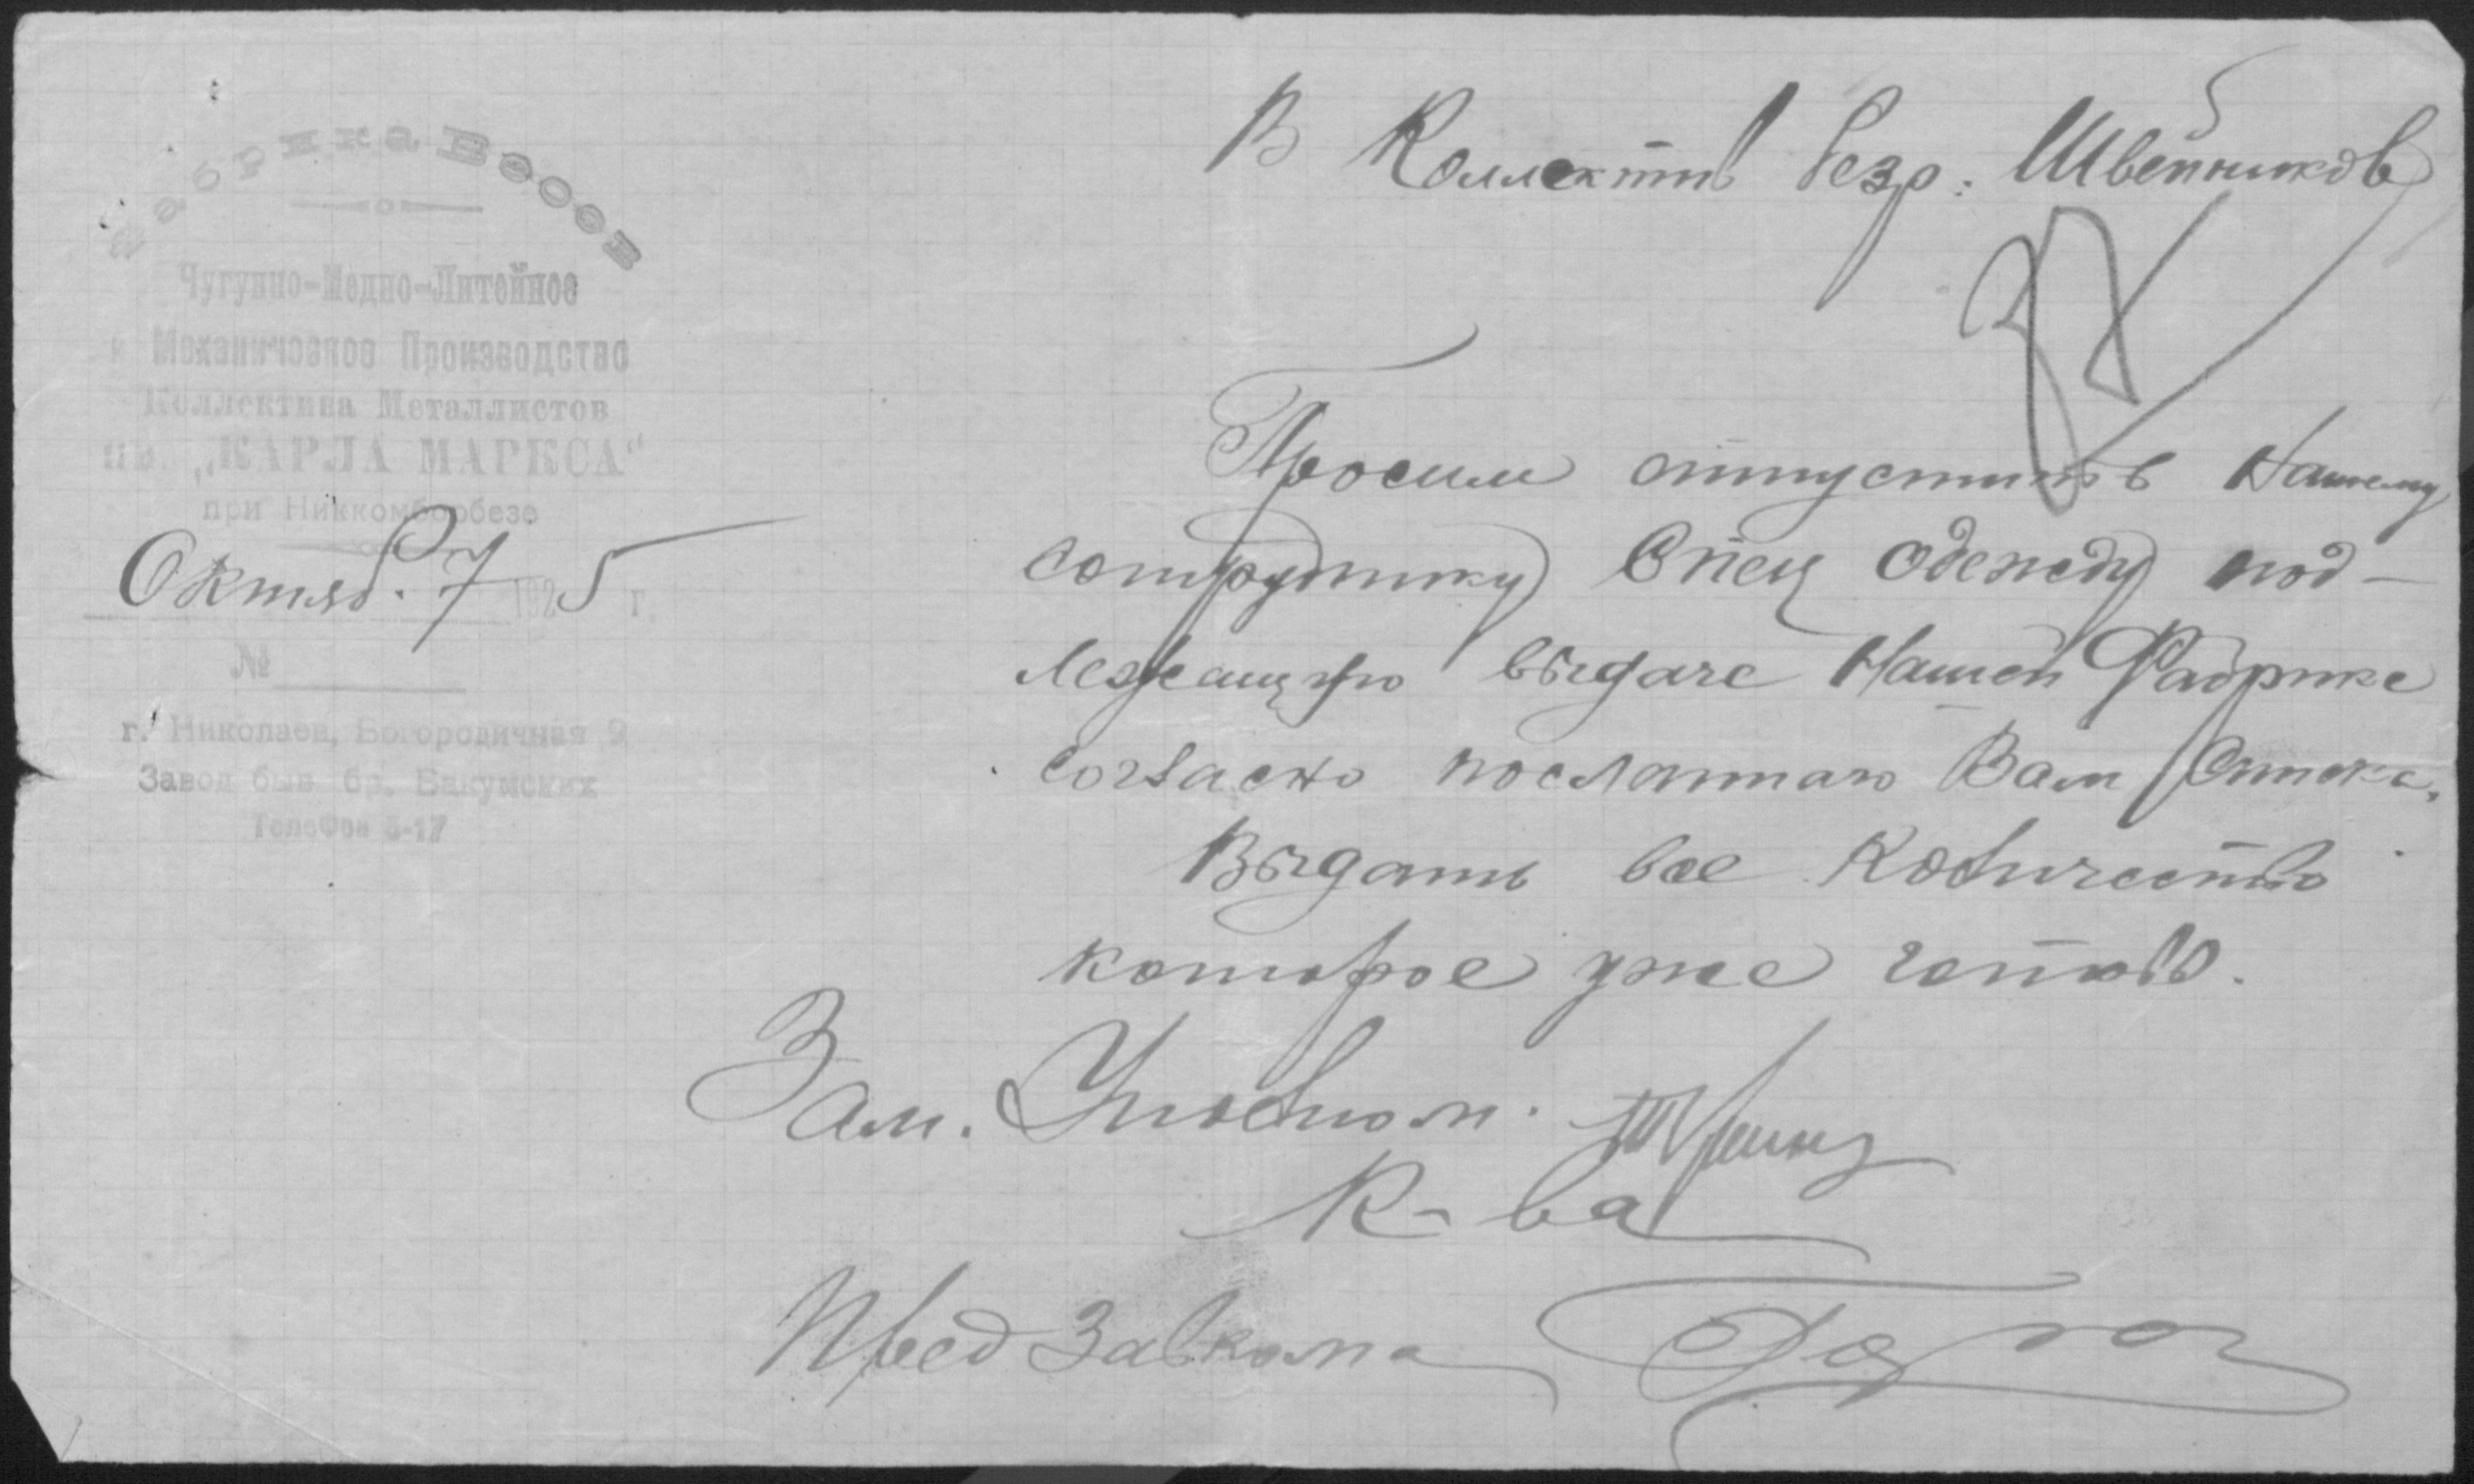 Фабрика Весов
Чугунно-Медно-Литейное
и Механическое Производство
Коллектива Металлистов
им. „КАРЛА МАРКСА“
при Никкомборбезе
Октяб. 7 1925 г.
№
г. Николаев, Богородичная 9
Завод быв. бр. Вакумских
Телефон 5-17
В Коллектив безр. Швейников
Просим отпустить Нашему
сотруднику Спец одежду под-
лежащую выдаче Нашей Фабрике
согласно посланного Вам Списка.
Выдать все Количество
которое уже готово.
Зам. Уполном.
К-ва
Пред Завкома